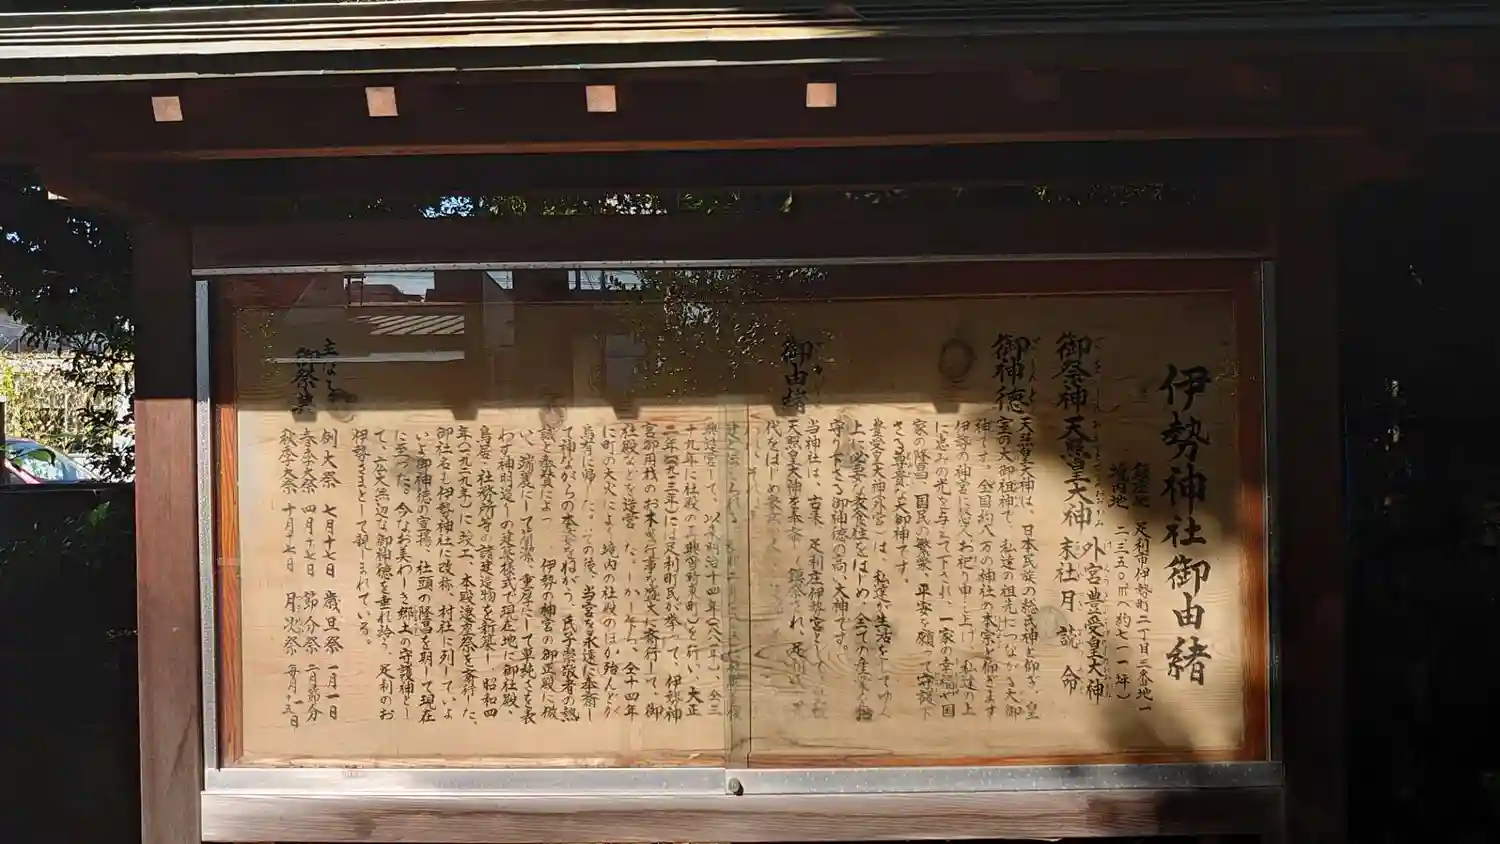 伊勢神社御由緒
鎮座地 足利市伊勢町二丁目三番地一
境内地 二三五〇㎡(約七一一坪)
御祭神 天照皇大神 外宮豊受皇大神
末社 月読命
御神徳 天照皇大神は、日本民族の総氏神と仰ぎ、皇
室の大御祖神で、私達の祖先につながる大御
神です。全国約八万の神社の本宗と仰ぎます
伊勢の神宮に
に恵みの光を与えて下され、一家の幸福や国
家の隆昌、国民の繁栄、平安を願って守護下
さる尊貴な大御神です。
豊受皇大神(外宮)は、私達が生活をしてゆく
上に必要な衣食住をはじめ、全ての産業を
守り下さる御神徳の高い大神です。
御由緒 当神社は、古来、足利庄伊勢宮として
天照皇大神を奉斎、鎮祭され、足利
代をはじめ
して、以来明治十四年(一八八一年)、仝三
十九年に社殿の
二年(一九一三年)には足利町民が挙って、伊勢神
宮御用材のお木曳行事を盛大に斎行して、御
社殿などを造営した。しかし乍ら、仝十四年
に町の大火により境内の社殿のほか殆んどが
烏有に帰した。その後、当宮を永遠に奉斎し
て神ながらの本義をねがう、氏子崇敬者の熱
誠と奉賛によって、伊勢の神宮の御正殿に倣
い、端麗にして簡潔、重厚にして単純さを表
わす神明造りの建築様式で現在地に御社殿、
鳥居、社務所等の諸建造物を新築し、昭和四
年(一九二九年)に竣工、本殿遷座祭を斎行した、
御社名も伊勢神社に改称、村社に列して、いよ
いよ御神徳の宣揚、社頭の隆昌を期して現在
に至った。今なお美わしき郷土の守護神とし
て、広大無辺な御神徳を垂れ給う、足利のお
伊勢さまとして親しまれている。
主なる
御祭典
例大祭 七月十七日 歳旦祭 一月一日
春季大祭 四月十七日 節分祭 二月節分
秋季大祭 十月十七日 月次祭 毎月一・十五日